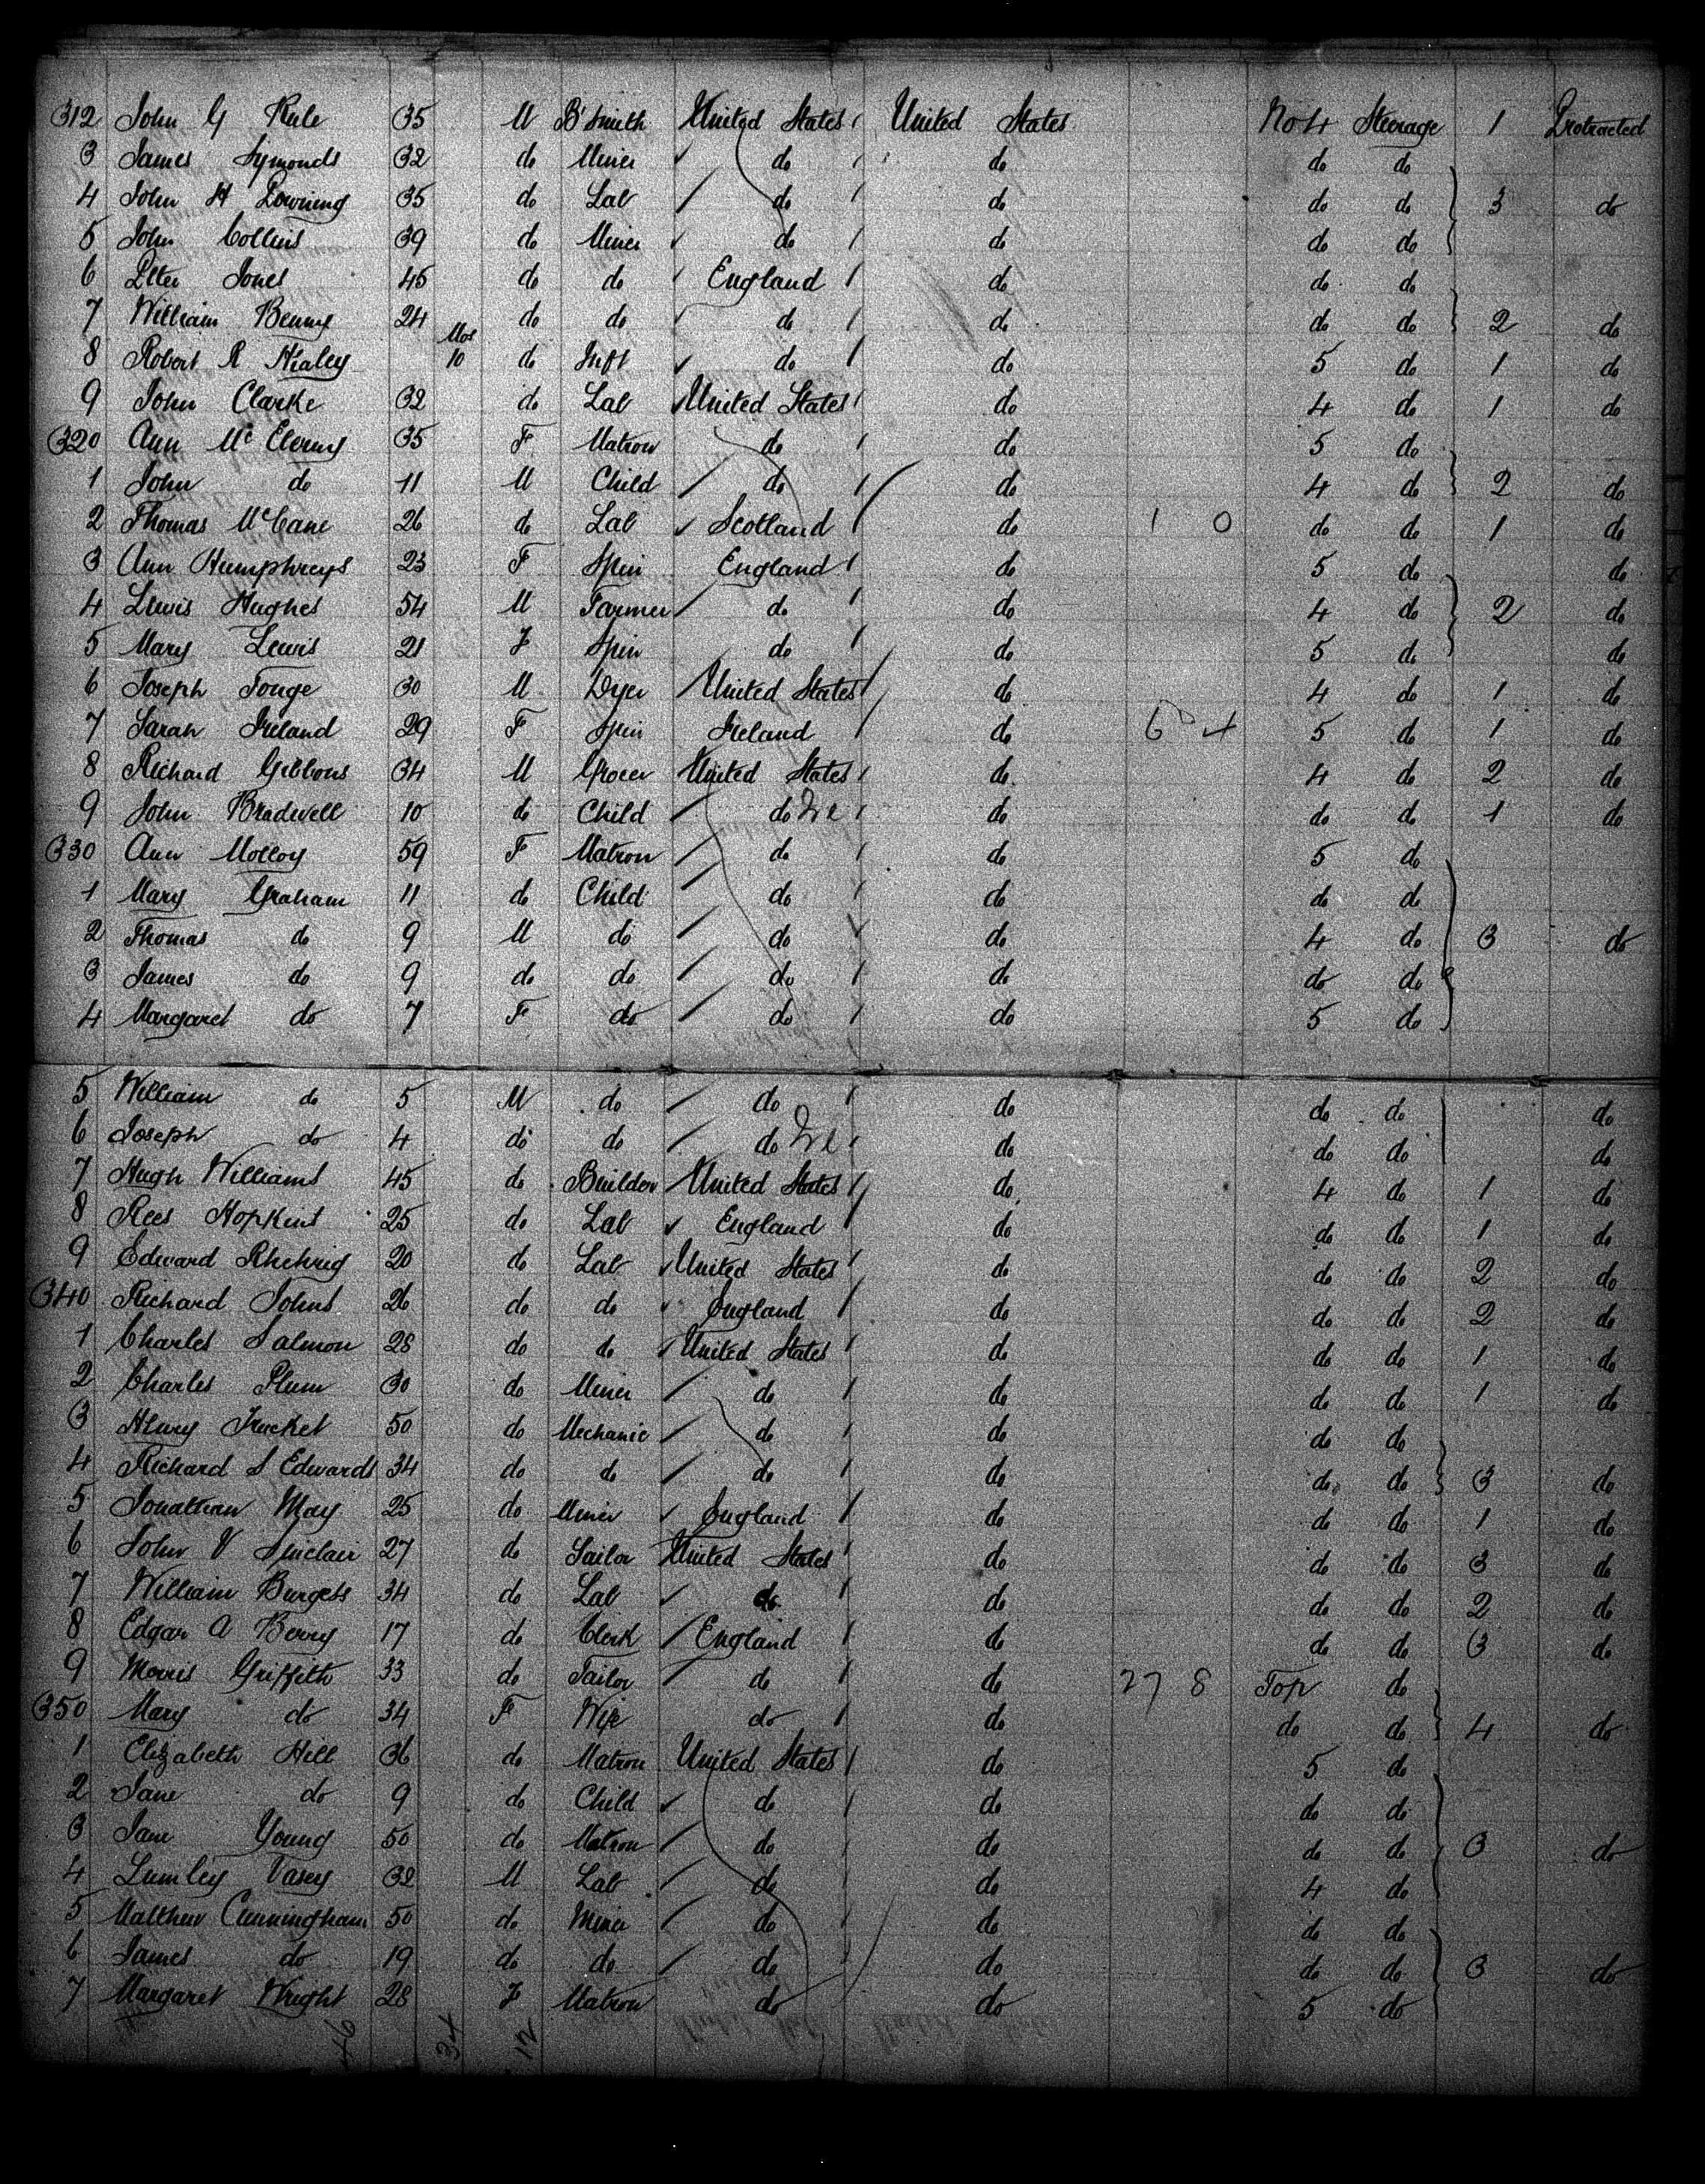 312 John G Rule 35 M B'Smith United States United States No 4 Steerage 1 Protracted
3 James Symonds 32 do Miner do do do do
4 John H Downing 35 do Lab do do do do 3 do
5 John Collins 39 do Miner do do do do
6 Peter Jones 45 do do England do do do
7 William Benny 24 do do do do do do 2 do
8 Robert R Healey Mos 10 do Inft do do 5 do 1 do
9 John Clarke 32 do Lab United States do 4 do 1 do
320 Ann Mc 35 F Matron do do 5 do
1 John do 11 M Child do do 4 do 2 do
2 Thomas McCane 26 do Lab Scotland do 1 0 do do 1 do
3 Ann Humphreys 23 F Spin England do 5 do do
4 Lewis Hughes 54 M Farmer do do 4 do 2 do
5 Mary Lewis 21 F Spin do do 5 do do
6 Joseph Tonge 30 M Dyer United States do 4 do 1 do
7 Sarah Ireland 29 F Spin Ireland do 6 4 5 do 1 do
8 Richard Gibbons 34 M Grocer United States do 4 do 2 do
9 John Bradwell 10 do Child do Ire do do do 1 do
330 Ann Molloy 59 F Matron do do 5 do
1 Mary Graham 11 do Child do do do do
2 Thomas do 9 M do do do 4 do 3 do
3 James do 9 do do do do do do
4 Margaret do 7 F do do do 5 do
5 William do 5 M do do do do do do
6 Joseph do 4 do do do Ire do do do do
7 Hugh Williams 45 do Builder United States do 4 do 1 do
8 Rees Hopkins 25 do Lab England do do do 1 do
9 Edward 20 do Lab United States do do do 2 do
340 Richard Johns 26 do do England do do do 2 do
1 Charles Salmon 28 do do United States do do do 1 do
2 Charles Plum 30 do Miner do do do do 1 do
3 Henry Trucket 50 do Mechanic do do do do
4 Richard S Edwards 34 do do do do do do 3 do
5 Jonathan May 25 do Miner England do do do 1 do
6 John V Sinclair 27 do Sailor United States do do do 3 do
7 William Burgess 34 do Lab do do do do 2 do
8 Edgar A Berry 17 do Clerk England do do do 3 do
9 Morris Griffith 33 do Tailor do do 27 8 Top do
350 Mary do 34 F Wife do do do do 4 do
1 Elizabeth Hill 36 do Matron United States do 5 do
2 Jane do 9 do Child do do do do
3 Jane Young 50 do Matron do do do do 3 do
4 Lumley Vasey 32 M Lab do do 4 do
5 Matthew Cunningham 50 do Miner do do do do
6 James do 19 do do do do do do 3 do
7 Margaret Wright 28 F Matron do do 5 do
46 34 12